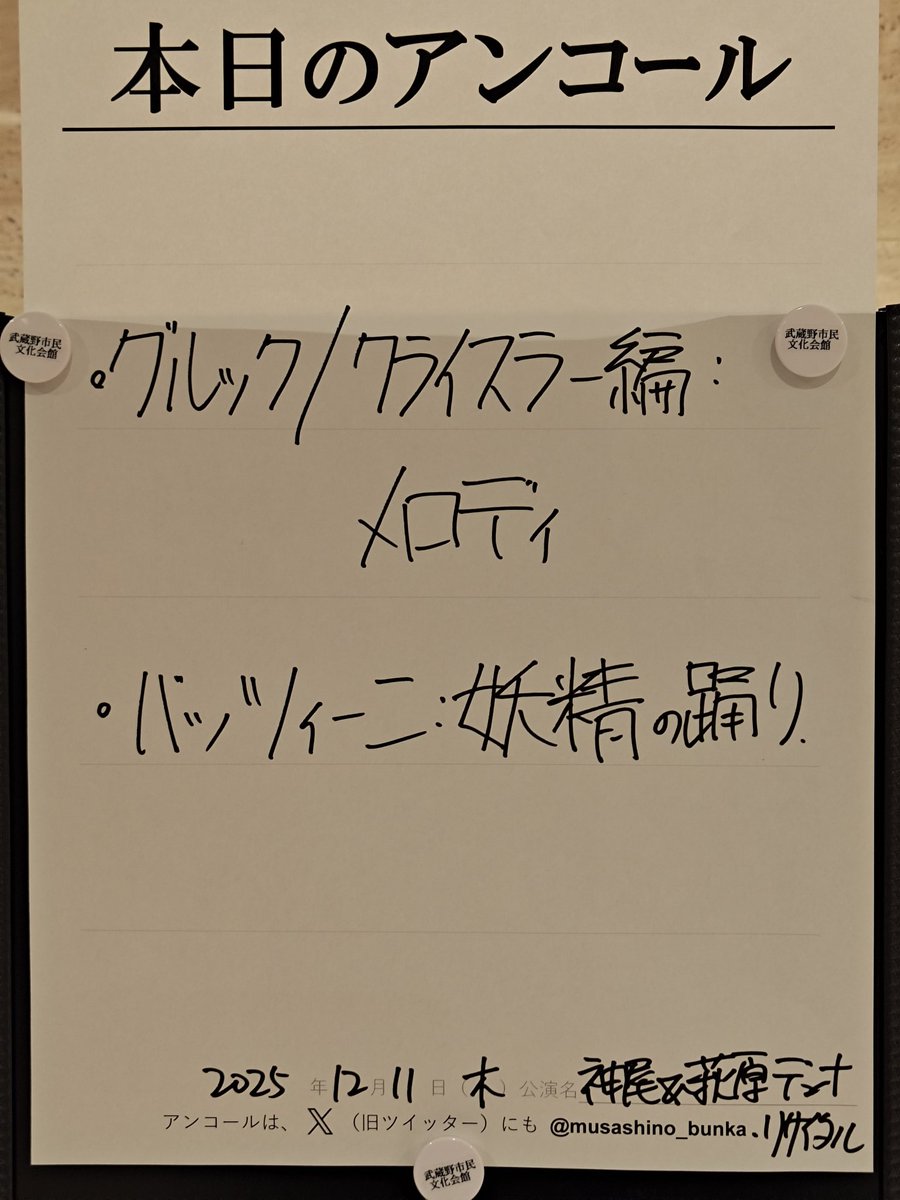 本日のアンコール
武蔵野市民
文化会館
武蔵野市民
文化会館
。グルック/クライスラー編:
メロディ
。バッヅィーニ:妖精の踊り.
2025 年 12 月 11 日 (木) 公演名 神尾&萩原デュオ
アンコールは、 X (旧ツイッター) にも @musashino_bunka .リサイタル
武蔵野市民
文化会館